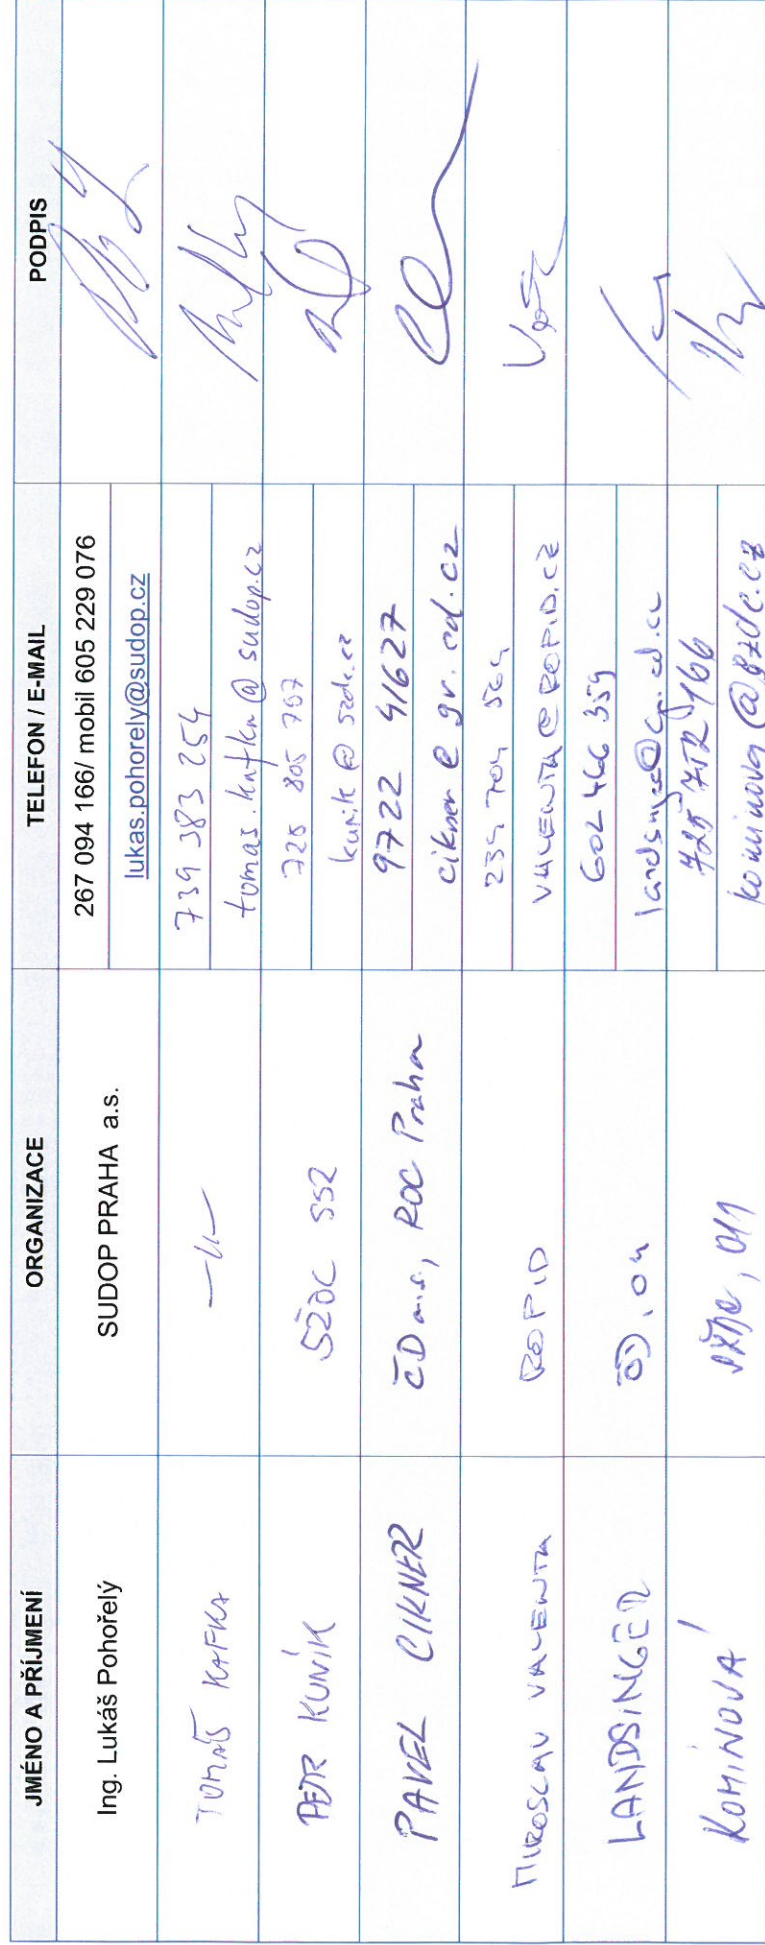 JMÉNO A PŘÍJMENÍ ORGANIZACE TELEFON / E-MAIL PODPIS
Ing. Lukáš Pohořelý SUDOP PRAHA a.s. 267 094 166/ mobil 605 229 076
lukas.pohorely@sudop.cz
TOMÁŠ KAFKA —||— 739 383 254
tomas.kafka@sudop.cz
PETR KUNÍK SŽDC SS2 725 805 757
kunik@szdc.cz
PAVEL CIKNER ČD a.s., ROC Praha 9722 41627
cikner@gr.cd.cz
MIROSLAV VALENTA ROPID 234 704 564
VALENTA@ROPID.CZ
LANDSINGER ČD, O4 602 466 359
KOMINOVÁ SŽDC, O11 725 712 166
kominova@szdc.cz